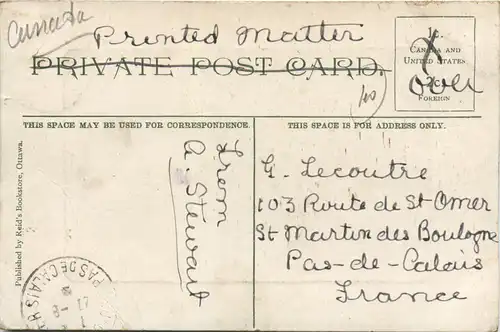 Canada
Printed Matter
PRIVATE POST CARD.
1c.
CANADA AND
UNITED STATES
2c.
FOREIGN
over
THIS SPACE MAY BE USED FOR CORRESPONDENCE.
THIS SPACE IS FOR ADDRESS ONLY.
Published by Reid's Bookstore, Ottawa.
From
A. Stewart
G. Lecoutre
103 Route de St-Omer
St Martin des Boulogne
Pas-de-Calais
France
PAS DE CALAIS